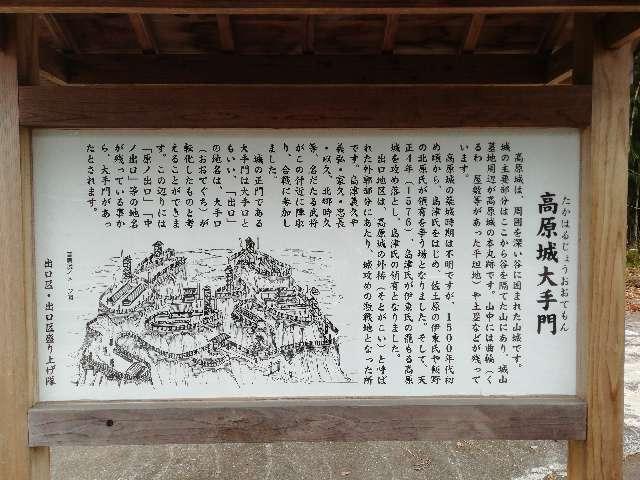 たかはるじょうおおてもん
高原城大手門
高原城は、周囲を深い谷に囲まれた山城です。
城の主要部分はここから谷を隔てた山にあり、城山
墓地周辺が高原城の本丸跡です。山中には曲輪（く
るわ・屋敷等があった平坦地）や土塁などが残って
います。
高原城の築城時期は不明ですが、１５００年代初
め頃から、島津氏をはじめ、佐土原の伊東氏や飯野
の北原氏が領有を争う場となりました。そして、天
正４年（１５７６）、島津氏が伊東氏の籠もる高原
城を攻め落とし、島津氏の領有となりました。
出口地区は、高原城の外構（そとがこい）と呼ば
れた外郭部分にあたり、城攻めの激戦地となった所
です。島津義久や
義弘・家久・忠長
・以久、北郷時久
等、名だたる武将
がこの付近に陣取
り、合戦に参加し
ました。
城の正門である
大手門は大手口と
もいい、「出口」
の地名は、大手口
（おおてぐち）が
転化したものと考
えることができま
す。この辺りには
「原ノ出口」「中
ノ出口」等の地名
が残っている事か
ら、大手門があっ
たとされます。
出口区・出口区盛り上げ隊